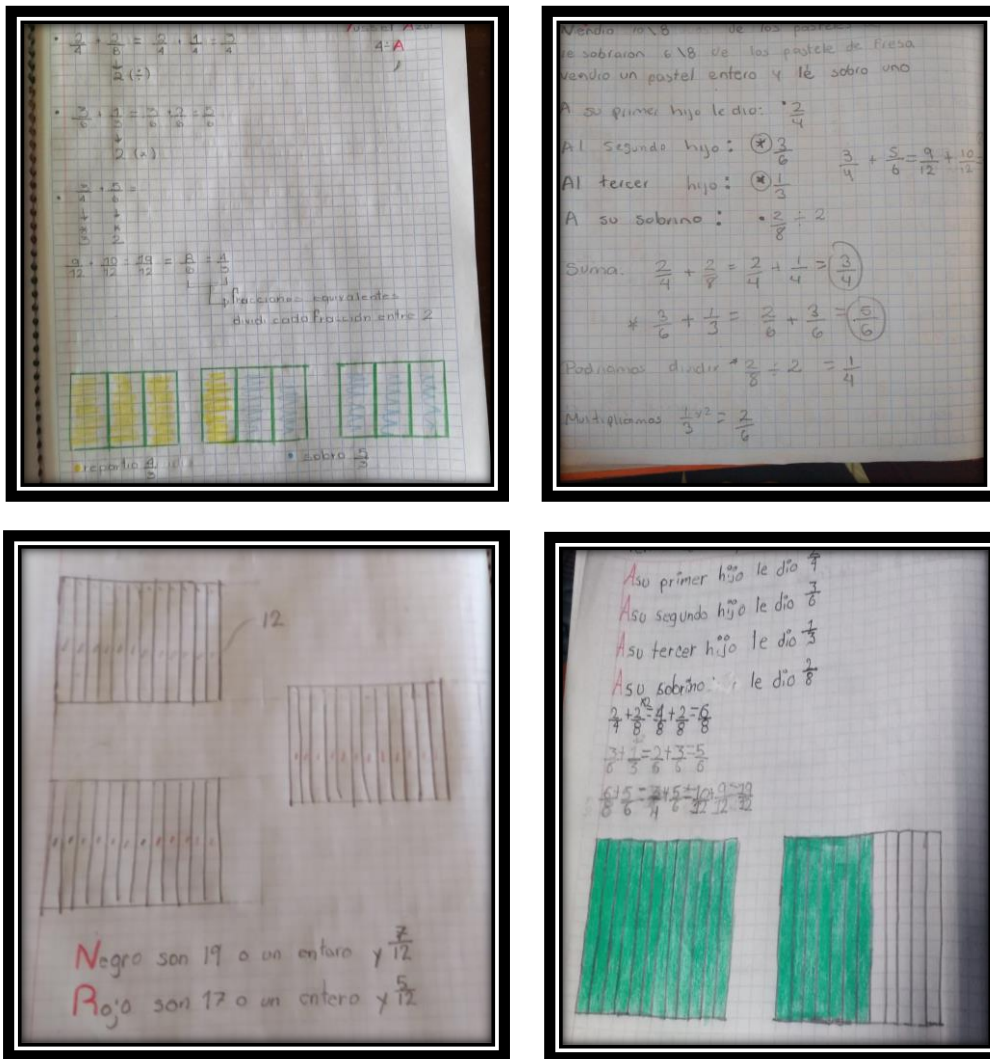 • 2/4 + 2/8 = 2/4 + 1/4 = 3/4
2 (÷)
• 3/6 + 1/3 = 3/6 + 2/6 = 5/6
2 (x)
• 3/4 + 5/6 =
3 2
9/12 + 10/12 = 19/12 = 8/6 = 4/3
fracciones equivalentes
dividi cada fracción entre 2
• repartio 4/3
• sobro 5/3
Vendio 10\8 de los
le sobraron 6\8 de los pastele de Fresa
vendio un pastel entero y le sobro uno
A su primer hijo le dio: • 2/4
Al segundo hijo: * 3/6
3/4 + 5/6 = 9/12 + 10/12 =
Al tercer hijo: * 1/3
A su sobrino: • 2/8 ÷ 2
Suma. 2/4 + 2/8 = 2/4 + 1/4 = 3/4
* 3/6 + 1/3 = 2/6 + 3/6 = 5/6
Podriamos dividir • 2/8 ÷ 2 = 1/4
Multiplicamos 1/3 x2 = 2/6
12
Negro son 19 o un entaro y 7/12
Rojo son 17 o un entero y 5/12
A su primer hijo le dio
A su segundo hijo le dio 3/6
A su tercer hijo le dio 1/3
A su sobrino: le dio 2/8
2/4 + 2/8 = 4/8 + 2/8 = 6/8
x2
3/6 + 1/3 = 2/6 + 3/6 = 5/6
6/8 + 5/6 = 3/4 + 5/6 = 10/12 + 9/12 = 19/12